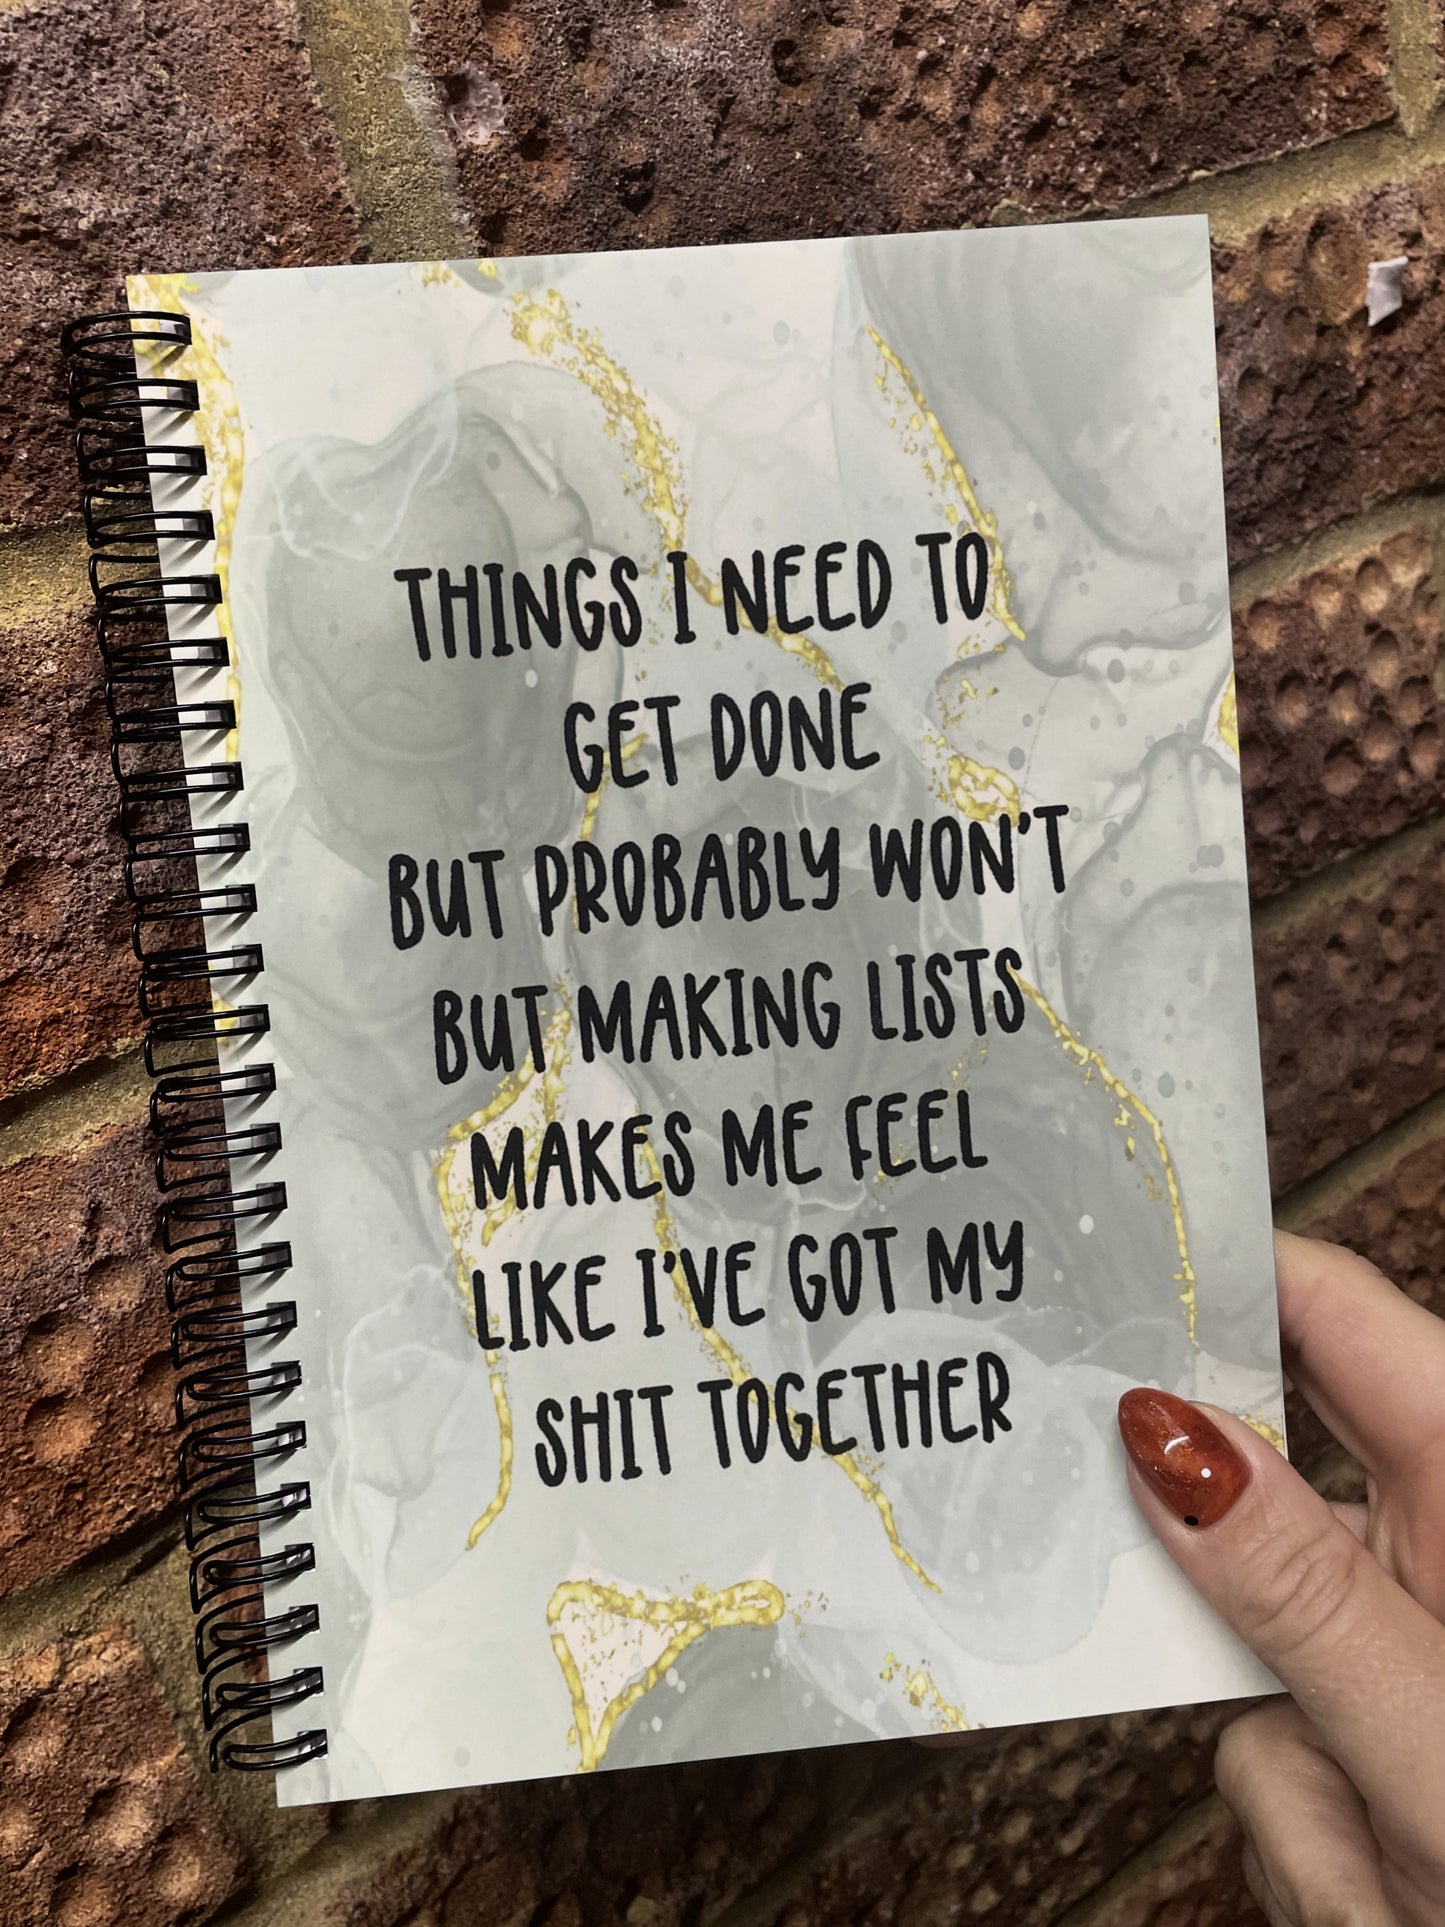 THINGS I NEED TO
GET DONE
BUT PROBABLY WON'T
BUT MAKING LISTS
MAKES ME FEEL
LIKE I'VE GOT MY
SHIT TOGETHER